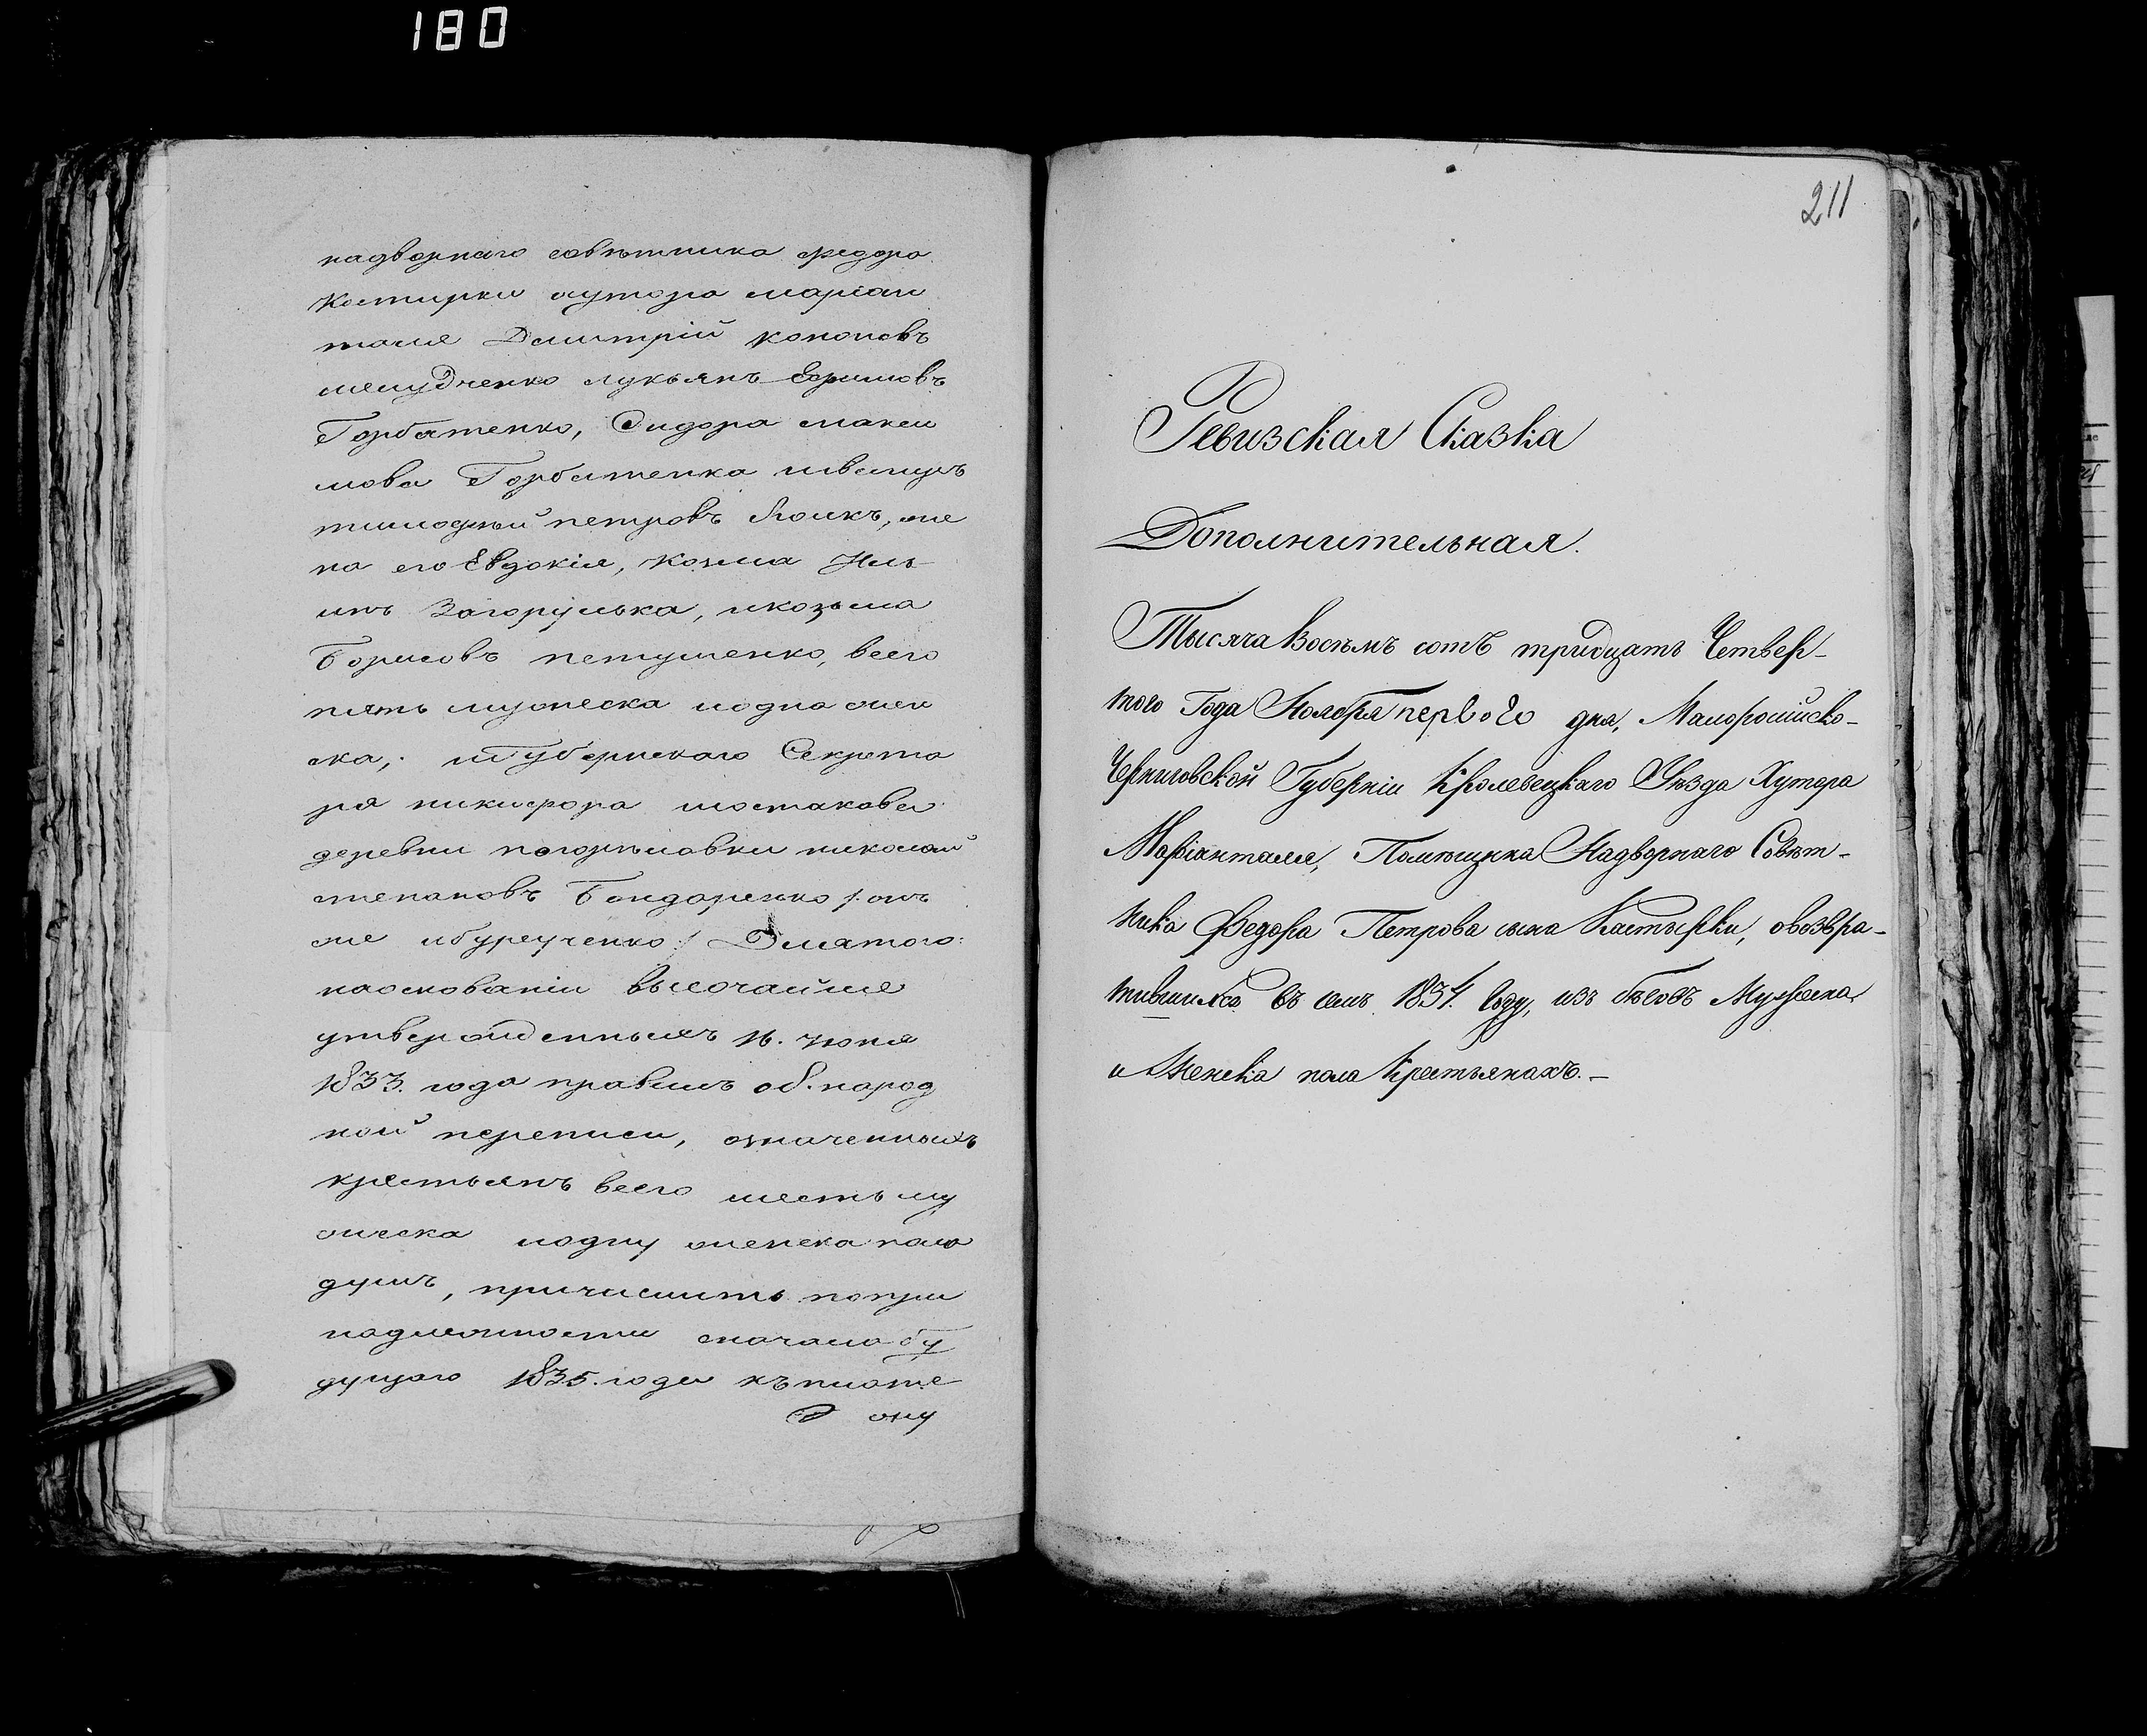 180
надворнаго совѣтника федора
Костирки хутора маріен
толя Дмитрій кононовъ
Лукьянъ Ефимовъ
Горбатенко, Сидора макси
мова Горбатенка
тимофѣй петровъ же
на его Евдокія, козма Иль
инъ Загорулька, икозьма
Борисовъ петушенко, всего
пять мужеска иодна жен
ска, игубернскаго Секрета
ря никифора шостакова
деревни погорѣловки николай
степановъ Бондаренко /: онъ
же Длятого:
наоснованіи высочайше
утвержденныхъ 16. июня
1833. года правилъ об. народ
ной переписи, означенныхъ
крестьянъ всего шесть му
жеска иодну женска пола
душъ, причислить попри
надлежности сначала бу
дущаго 1835. года къ
ону
211
Ревизская Сказка
Дополнительная.
Тысяча Восѣмъ сотъ тридцать Четвер-
того Года Ноября первого дня, Малоросійско-
Черниговской Губерніи Кролевецкаго Уѣзда Хутора
Маріанталя, Помѣщика Надворнаго Совѣт-
ника Федора Петрова сына Кастырки, овозвра-
тившихся въ семъ 1834. Году, изъ бѣговъ Мужеска,
и Женска пола Крестьянахъ.-